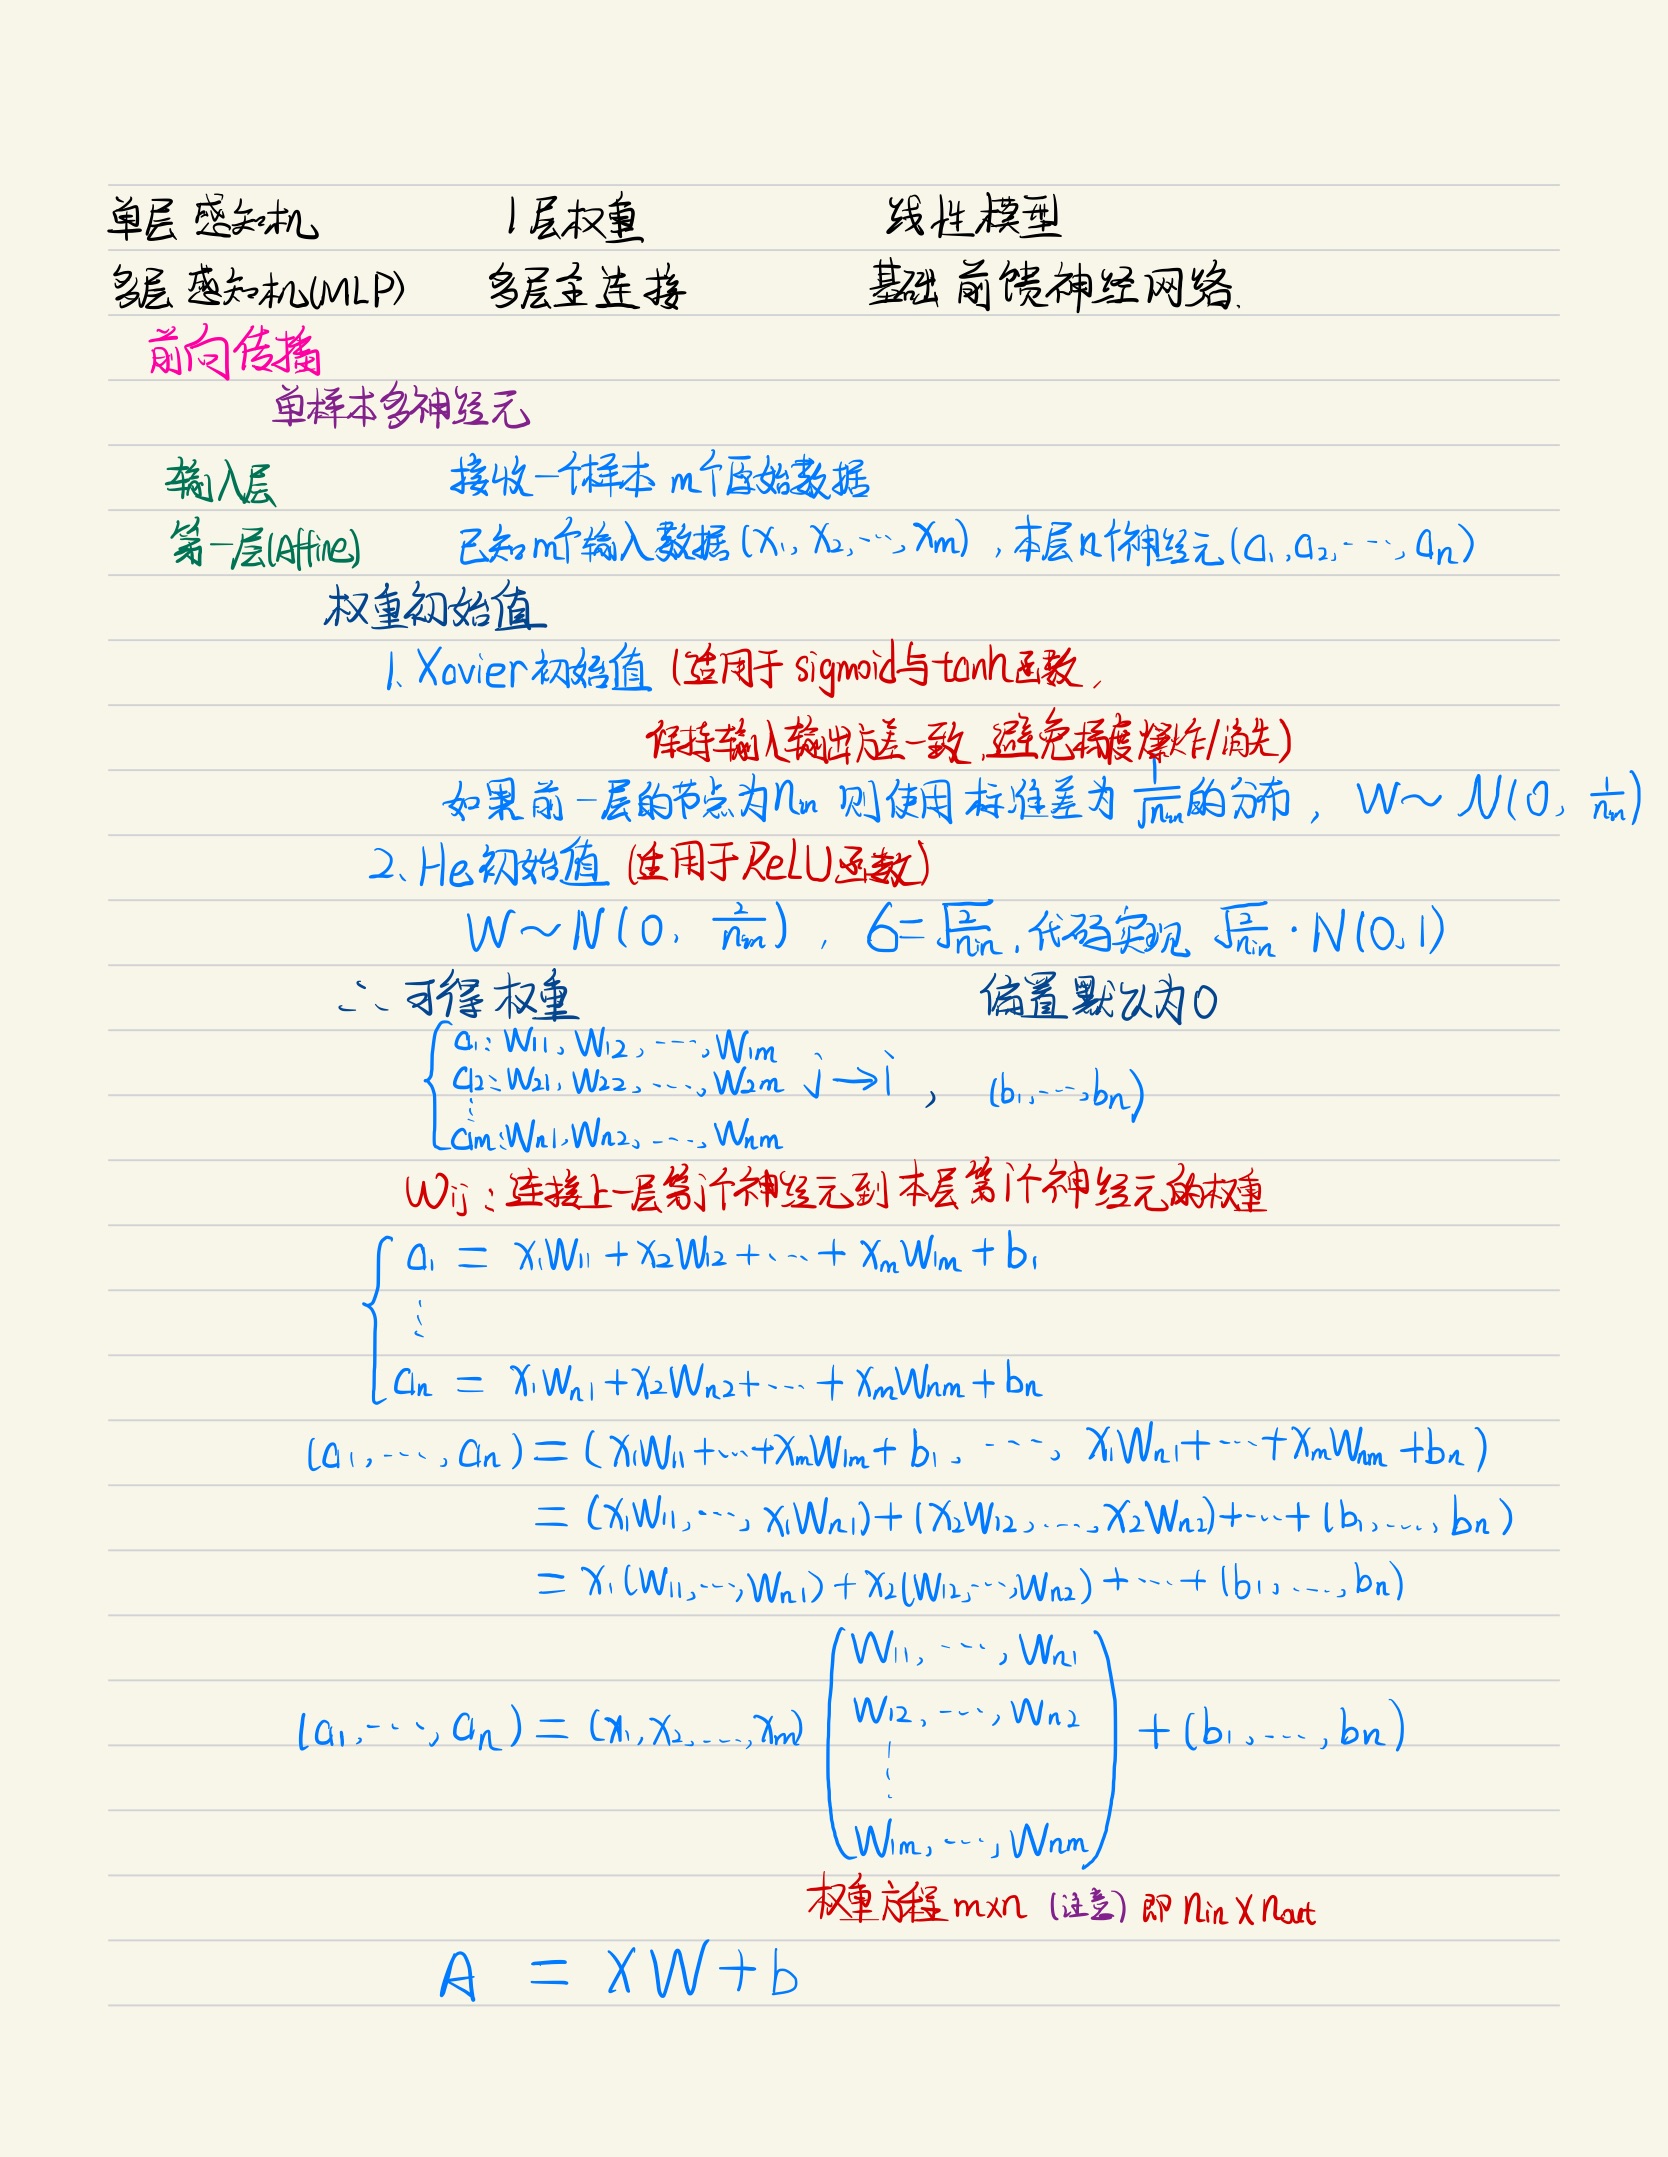 单层感知机 1层权重 线性模型
多层感知机(MLP) 多层全连接 基础前馈神经网络.
前向传播
单样本多神经元
输入层 接收一个样本 m个原始数据
第一层(Affine) 已知m个输入数据(x₁, x₂, ..., xₘ), 本层n个神经元(a₁, a₂, ..., aₙ)
权重初始值
1、Xavier初始值 (适用于sigmoid与tanh函数,
保持输入输出方差一致, 避免梯度爆炸/消失)
如果前一层的节点为nᵢₙ 则使用标准差为 1/√nᵢₙ 的分布, W ~ N(0, 1/nᵢₙ)
2、He初始值 (适用于ReLU函数)
W ~ N(0, 2/nᵢₙ), σ = √(2/nᵢₙ), 代码实现 √(2/nᵢₙ) · N(0,1)
∴ 可得权重 偏置默认为0
a₁: W₁₁, W₁₂, ..., W₁ₘ
a₂: W₂₁, W₂₂, ..., W₂ₘ j → i , (b₁, ..., bₙ)
⋮
aₘ: Wₙ₁, Wₙ₂, ..., Wₙₘ
Wij: 连接上一层第j个神经元到本层第i个神经元的权重
a₁ = x₁W₁₁ + x₂W₁₂ + ... + xₘW₁ₘ + b₁
⋮
aₙ = x₁Wₙ₁ + x₂Wₙ₂ + ... + xₘWₙₘ + bₙ
(a₁, ..., aₙ) = (x₁W₁₁ + ... + xₘW₁ₘ + b₁, ..., x₁Wₙ₁ + ... + xₘWₙₘ + bₙ)
= (x₁W₁₁, ..., x₁Wₙ₁) + (x₂W₁₂, ..., x₂Wₙ₂) + ... + (b₁, ..., bₙ)
= x₁(W₁₁, ..., Wₙ₁) + x₂(W₁₂, ..., Wₙ₂) + ... + (b₁, ..., bₙ)
W₁₁, ..., Wₙ₁
(a₁, ..., aₙ) = (x₁, x₂, ..., xₘ) W₁₂, ..., Wₙ₂ + (b₁, ..., bₙ)
⋮
W₁ₘ, ..., Wₙₘ
权重方程 m×n (注意) 即 nᵢₙ × nₒᵤₜ
A = XW + b